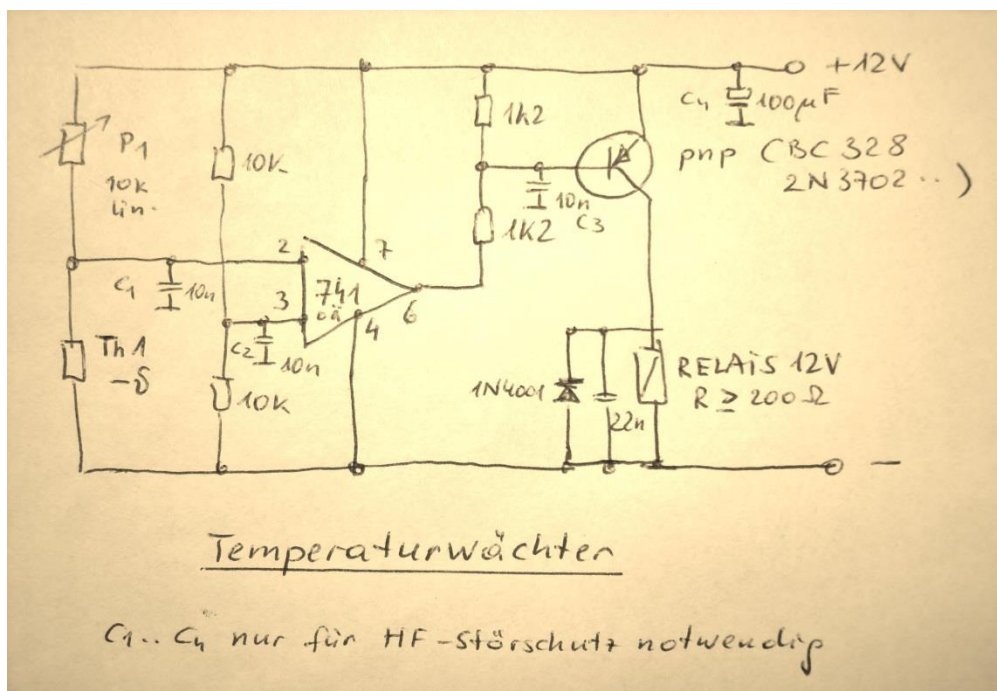 +12V
C4 100µF
P1
10k
lin.
10K
1k2
pnp (BC 328
2N3702..)
10n
C3
1K2
2
7
C1
10n
3
741
oä
6
4
Th1
-δ
C2
10n
10K
1N4001
22n
RELAiS 12V
R ≥ 200Ω
-
Temperaturwächter
C1.. C4 nur für HF-Störschutz notwendig